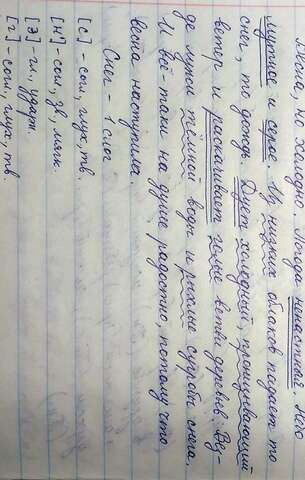 но холодно. Погода ненастная. Небо
мутное и серое. Из низких облаков падает то
снег, то дождь. Дует холодный, пронизывающий
ветер и раскачивает голые ветви деревьев. Вез-
де лужи тёмной воды и рыхлые сугробы снега.
И всё-таки на душе радостно, потому что
весна наступила.
Снег - 1 слог
[с] - согл, глух, тв.
[н'] - согл, зв, мягк.
[э] - гл, ударн.
[г] - согл, глух, тв.